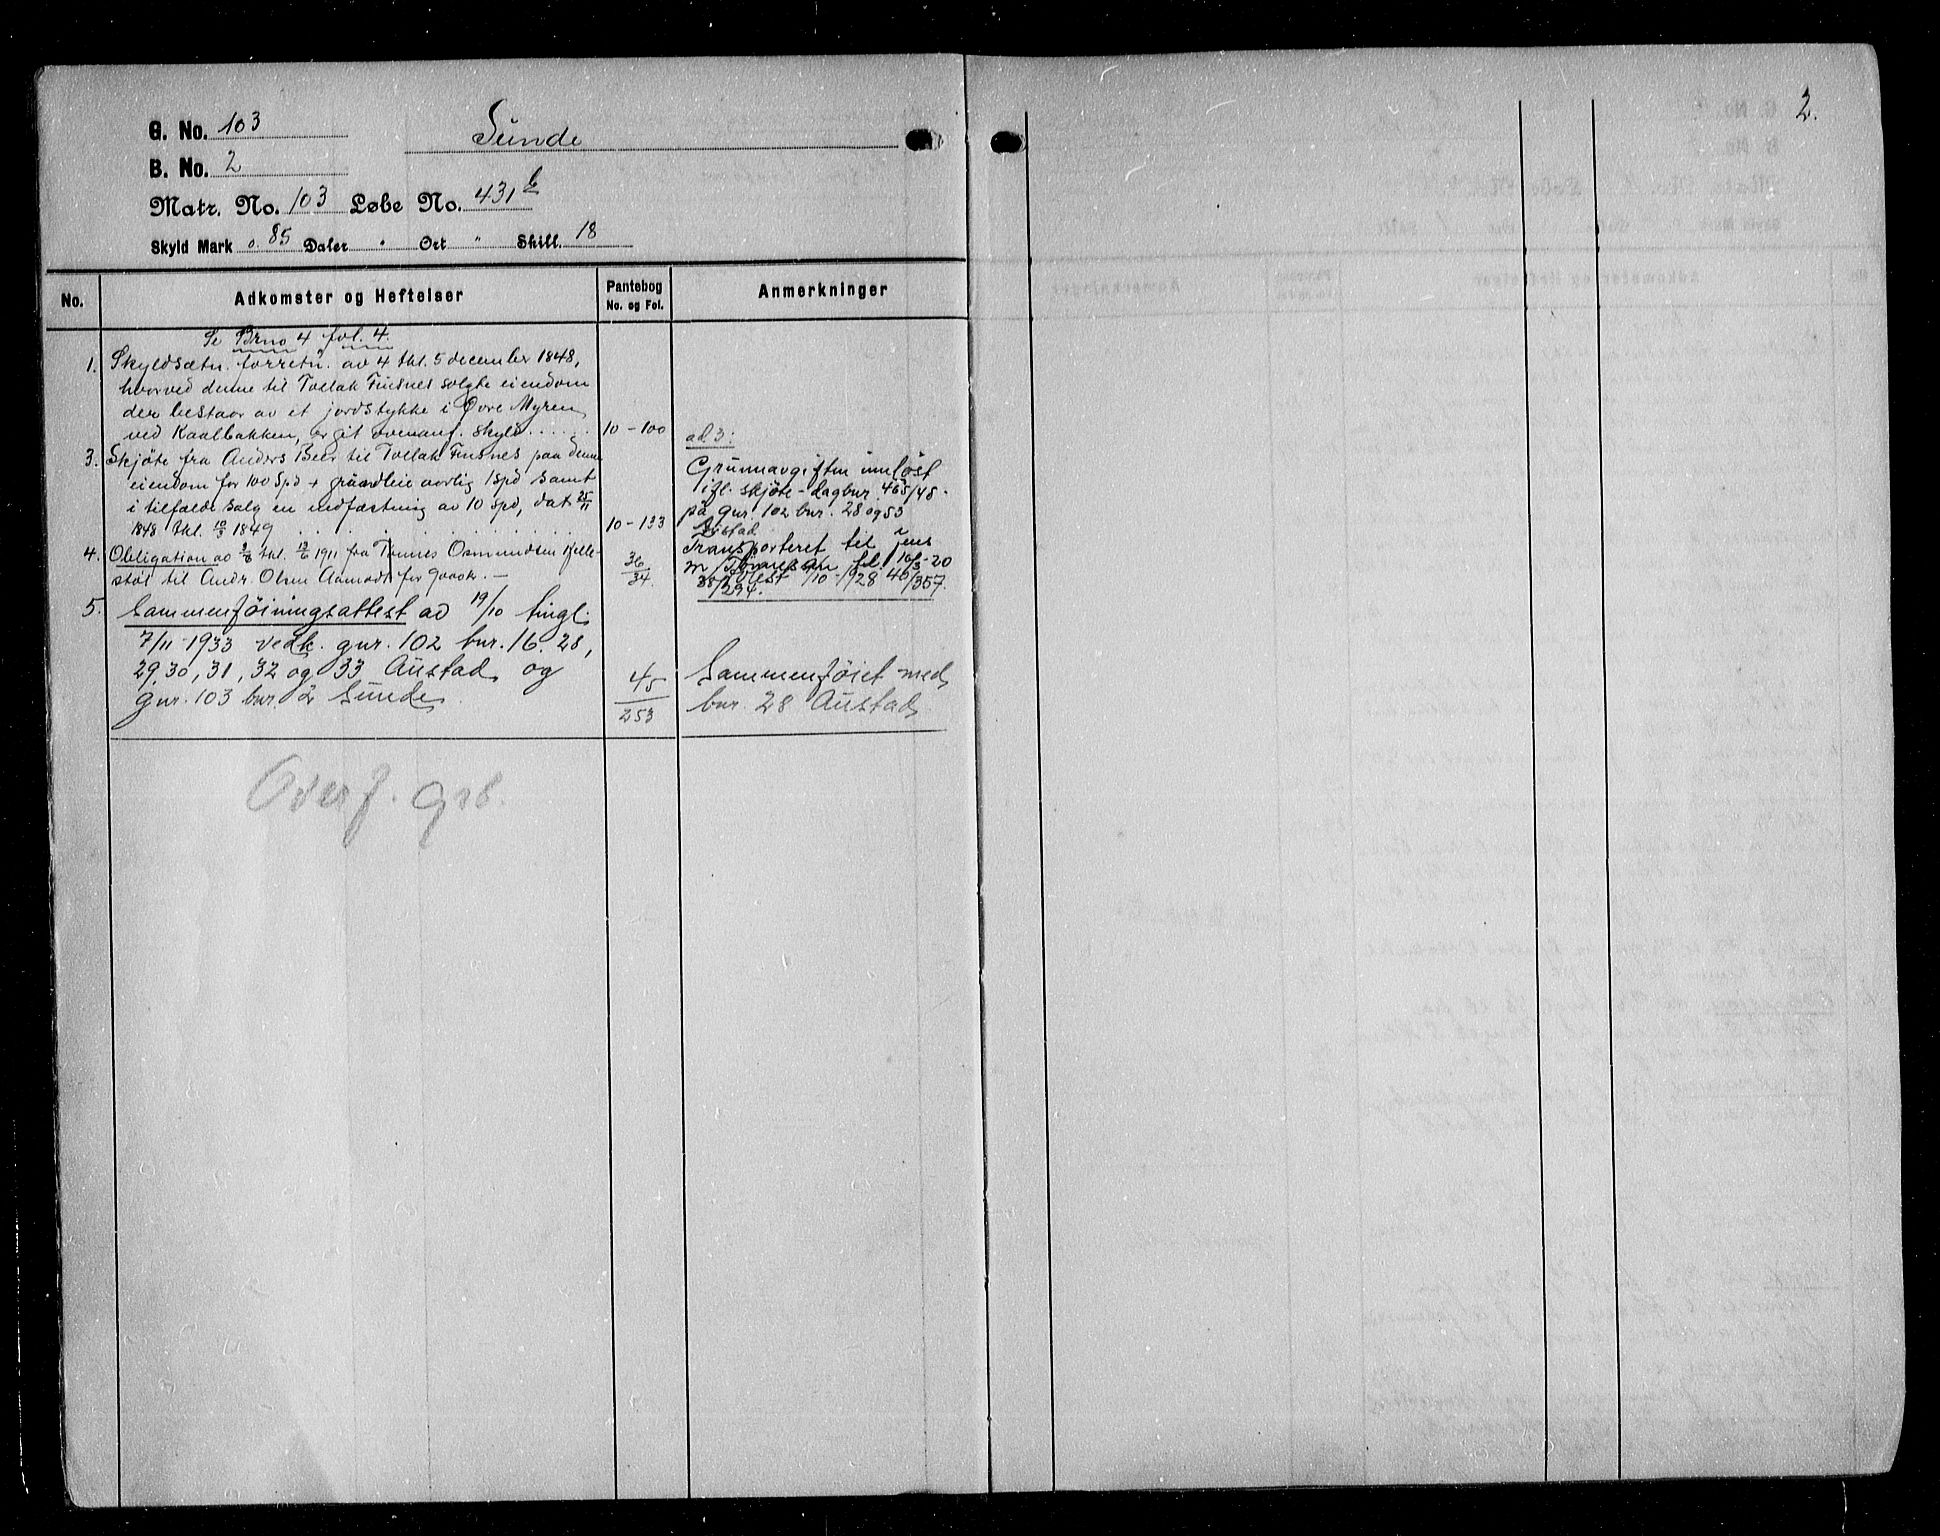 2.
G. No. 103
Sunde
B. No. 2
Matr. No. 103 Løbe No. 431 b
Skyld Mark 0.85 Daler " Ort " Skill. 18
No. Adkomster og Heftelser Pantebog No. og Fol. Anmerkninger
Se Brno 4 fol. 4.
1. Skyldsætn. forretn. av 4 thl. 5 december 1848,
hvorved denne til Tollak Fuesnes solgte eiendom
der bestaar av et jordstykke i Øvre Myren
ved Kaalbakken, er git ovenanf. skyld...... 10-100
3. Skjøte fra Anders Beer til Tollak Fuesnes paa denne
eiendom for 100 Spd + grundleie aarlig 1 Spd samt
i tilfælde salg en indfæstning av 10 Spd, dat 25/11
1848 thl. 10/3 1849 10-133
4. Obligation av 9/6 thl. 13/6 1911 fra Tønnes Osmundsen Kjelle-
støl til Andr. Olsen Aamodt for 900 kr. — 36/34
5. Sammenføiningsattest av 19/10 tingl.
7/11-1933 vedk. gnr. 102 bnr. 16. 28,
29, 30, 31, 32 og 33 Austad og
gnr. 103 bnr. 2 Sunde. 45/253
ad 3:
Grunnavgiften innløst
ifl. skjøte-dagbnr. 465/48.
på gnr. 102 bnr. 28 og 53
Austad
Transporteret til Jens
M Tønnessen tl. 10/3-20
38/294. Avlest /10-1928 40/357.
Sammenføiet med
bnr. 28 Austad
Overf. grb.